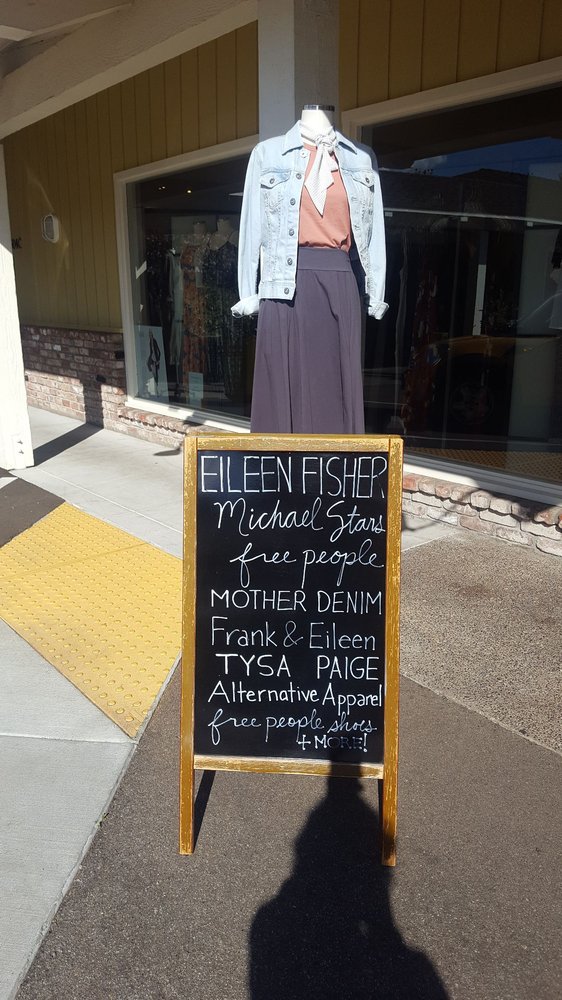 EILEEN FISHER
Michael Stars
free people
MOTHER DENIM
Frank & Eileen
TYSA PAIGE
Alternative Apparel
free people shoes
+ MORE!